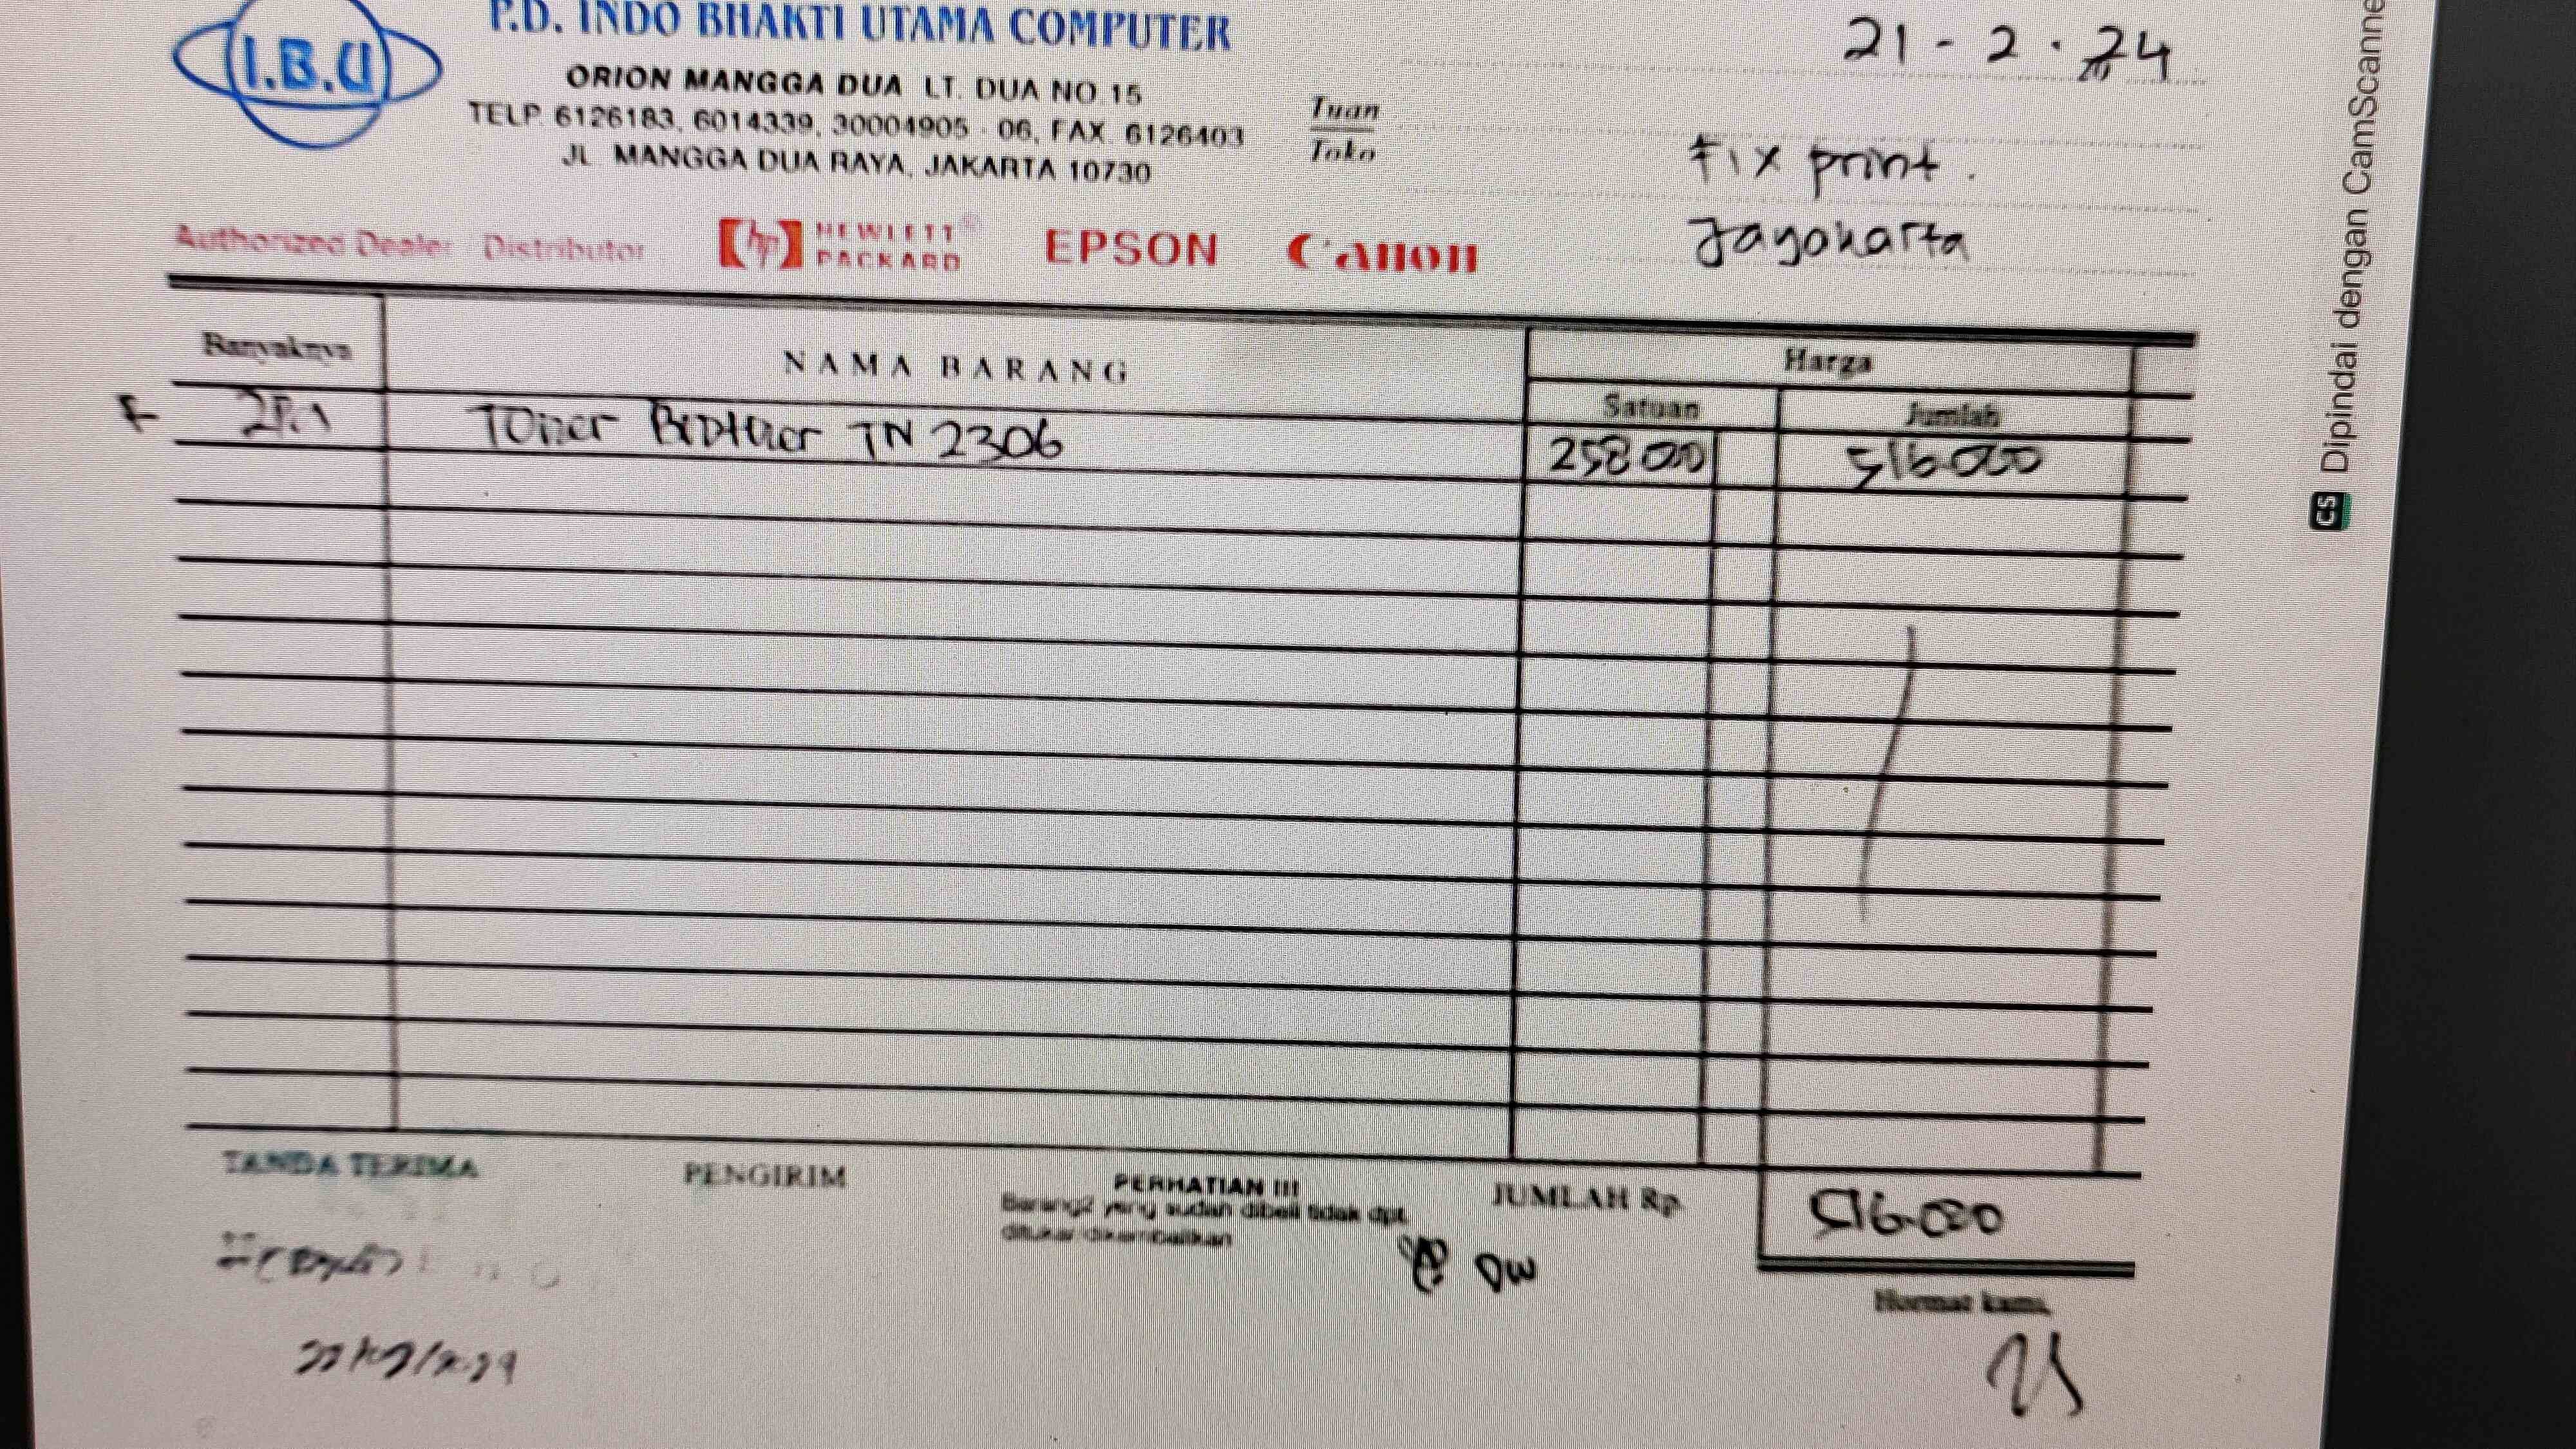 I.B.U
P.D. INDO BHAKTI UTAMA COMPUTER
ORION MANGGA DUA LT. DUA NO. 15
TELP. 6126183, 6014339, 30004905 - 06, FAX. 6126403
JL. MANGGA DUA RAYA, JAKARTA 10730
21 - 2 . 24
Tuan
Toko
Fix print.
Jayakarta
Authorized Dealer Distributor
hp HEWLETT PACKARD
EPSON
Canon
Banyaknya
NAMA BARANG
Harga
Satuan
Jumlah
Toner Brother TN 2306
258000
516000
TANDA TERIMA
PENGIRIM
PERHATIAN !!!
Barang2 yang sudah dibeli tidak dpt.
ditukar/dikembalikan
JUMLAH Rp.
516.000
Hormat kami,
CS Dipindai dengan CamScanne